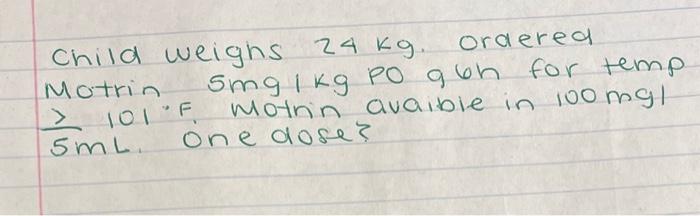 Child weighs 24 kg. Ordered
Motrin 5mg/kg PO q6h for temp
≥ 101°F. Motrin avaible in 100mg/
5mL. One dose?